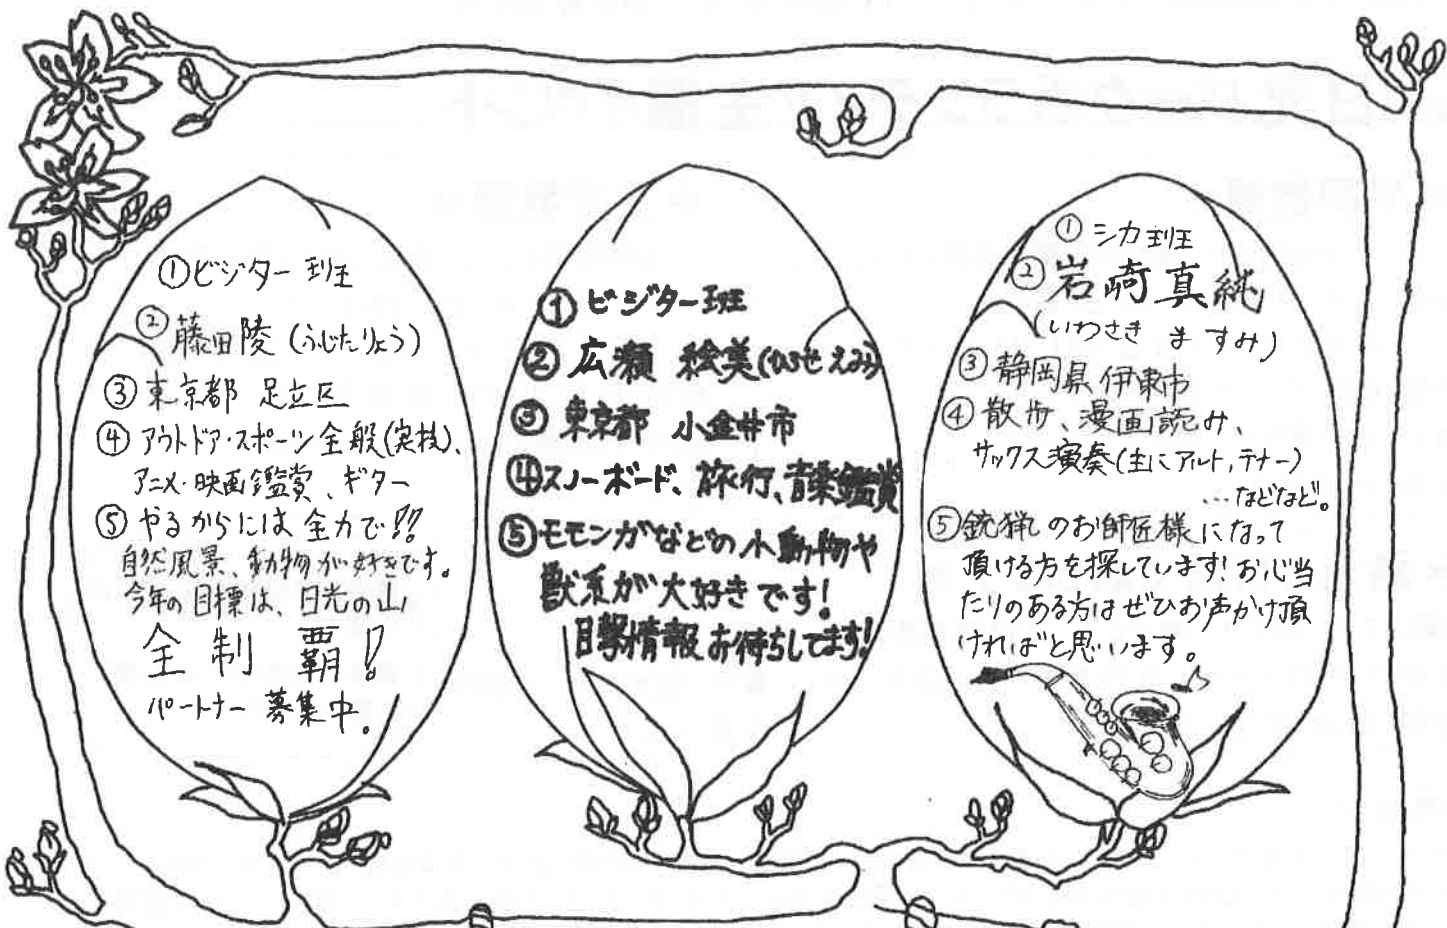 ①ビジター班
②藤田陵(ふじたりょう)
③東京都 足立区
④アウトドア・スポーツ全般(実技)、
アニメ・映画鑑賞、ギター
⑤やるからには全力で!!
自然風景、動物が好きです。
今年の目標は、日光の山
全制覇!
パートナー募集中。
①ビジター班
②広瀬 絵美(ひろせ えみ)
③東京都 小金井市
④スノーボード、旅行、音楽鑑賞
⑤モモンガなどの小動物や
獣系が大好きです!
目撃情報お待ちしてます!
①シカ班
②岩崎真純
(いわさき ますみ)
③静岡県伊東市
④散歩、漫画読み、
サックス演奏(主にアルト,テナー)
…などなど。
⑤銃猟のお師匠様になって
頂ける方を探しています!お心当
たりのある方はぜひお声かけ頂
ければと思います。